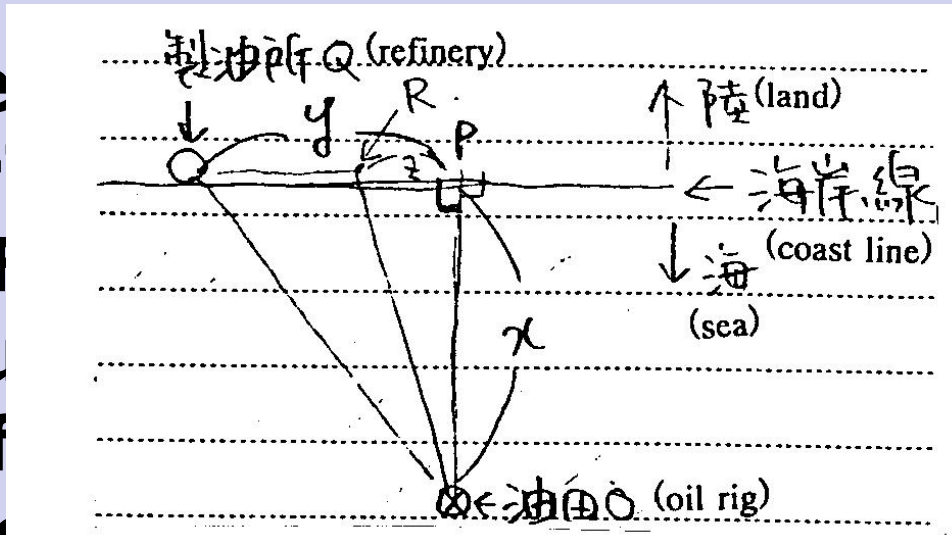 製油所Q (refinery)
R
y
P
z
陸 (land)
海岸線
(coast line)
海
(sea)
x
油田O (oil rig)